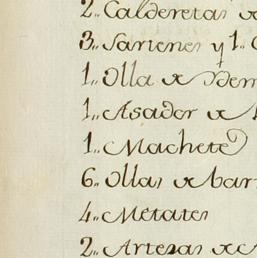 2,, Calderetas de
3,, Sartenes y 1
1,, Olla de
1,, Asador de
1,, Machete
6,, Ollas de bar
4,, Metates
2,, Artesas de